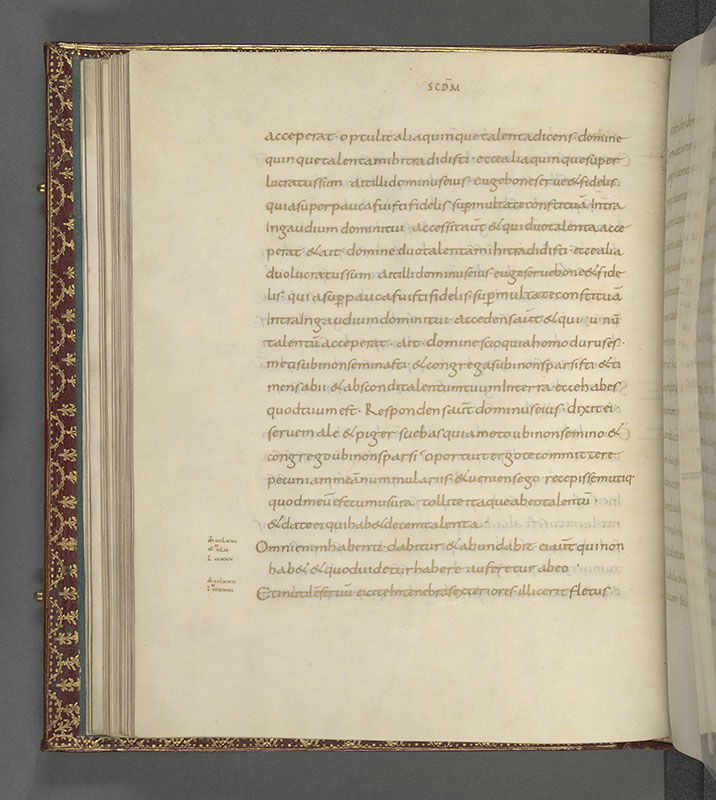 SCD̄M
acceperat · optulit alia quinque talenta dicens · domine
quinque talenta mihi tradidisti · ecce alia quinque super
lucratus sum ait illi dominus eius · euge bone serve & fidelis
quia super pauca fuisti fidelis · sup multa te constituā Intra
In gaudium domini tui accessit aūt & qui duo talenta acce
perat · & ait · domine duo talenta mihi tradidisti · ecce alia
duo lucratus sum ait illi dominus eius · euge serve bone & fide
lis · quia sup pauca fuisti fidelis · sup multa te constituā
Intra In gaudium domini tui · accedens aūt & qui · unū
talentū acceperat · ait · domine scio quia homo durus es ·
metis ubi non seminasti · & congregas ubi non sparsisti · & ti
mens abii · & abscondi talentum tuum In terra · ecce habes
quod tuum est · Respondens aūt dominus eius · dixit ei ·
serve male & piger sciebas quia meto ubi non semino · &
congrego ubi non sparsi oportuit ergo te committere
pecuniam meā nummulariis · & veniens ego recepissem utiq·
quod meū est cum usura tollite itaque ab eo talentū ·
& date ei qui hab& decem talenta ·
Omni enim habenti dabitur · & abundabit ei aūt qui non
hab& · & quod uidetur habere auferetur ab eo ·
Et inutilē seruū eicite In tenebras exteriores · illic erit fletus